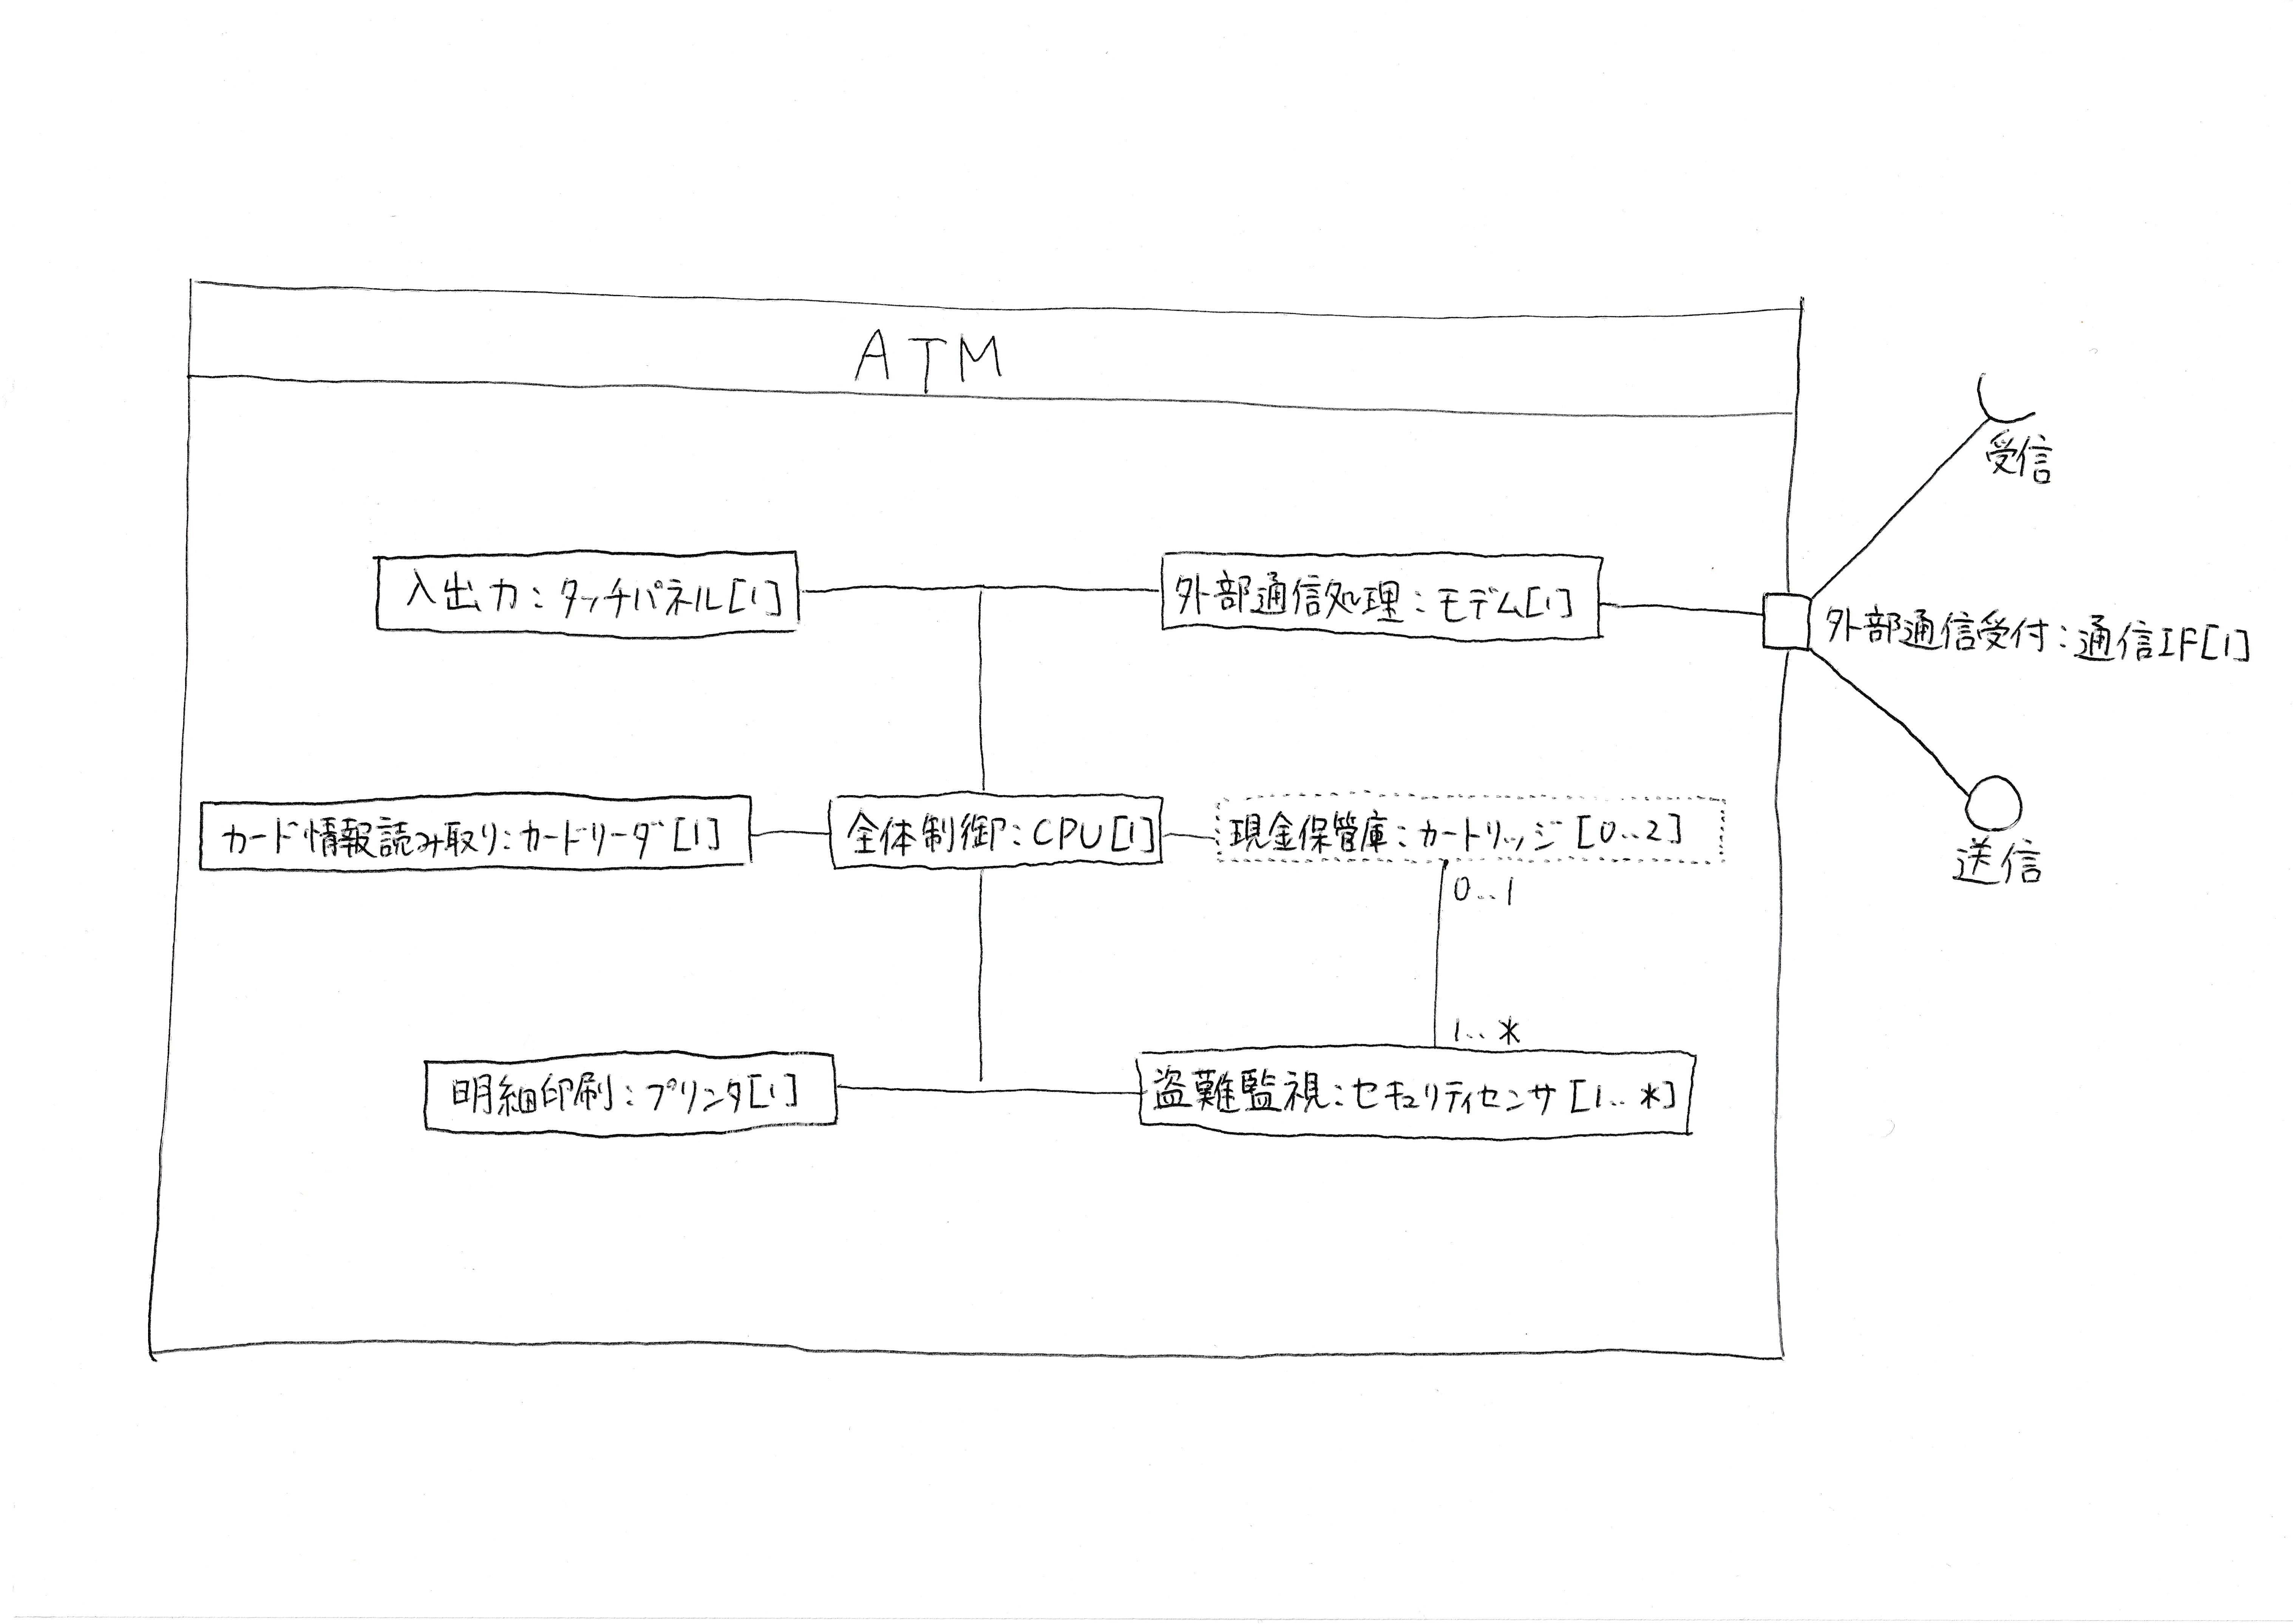 ATM
受信
入出力:タッチパネル[1]
外部通信処理:モデム[1]
外部通信受付:通信IF[1]
カード情報読み取り:カードリーダ[1]
全体制御:CPU[1]
現金保管庫:カートリッジ[0..2]
送信
0..1
1..*
明細印刷:プリンタ[1]
盗難監視:セキュリティセンサ[1..*]